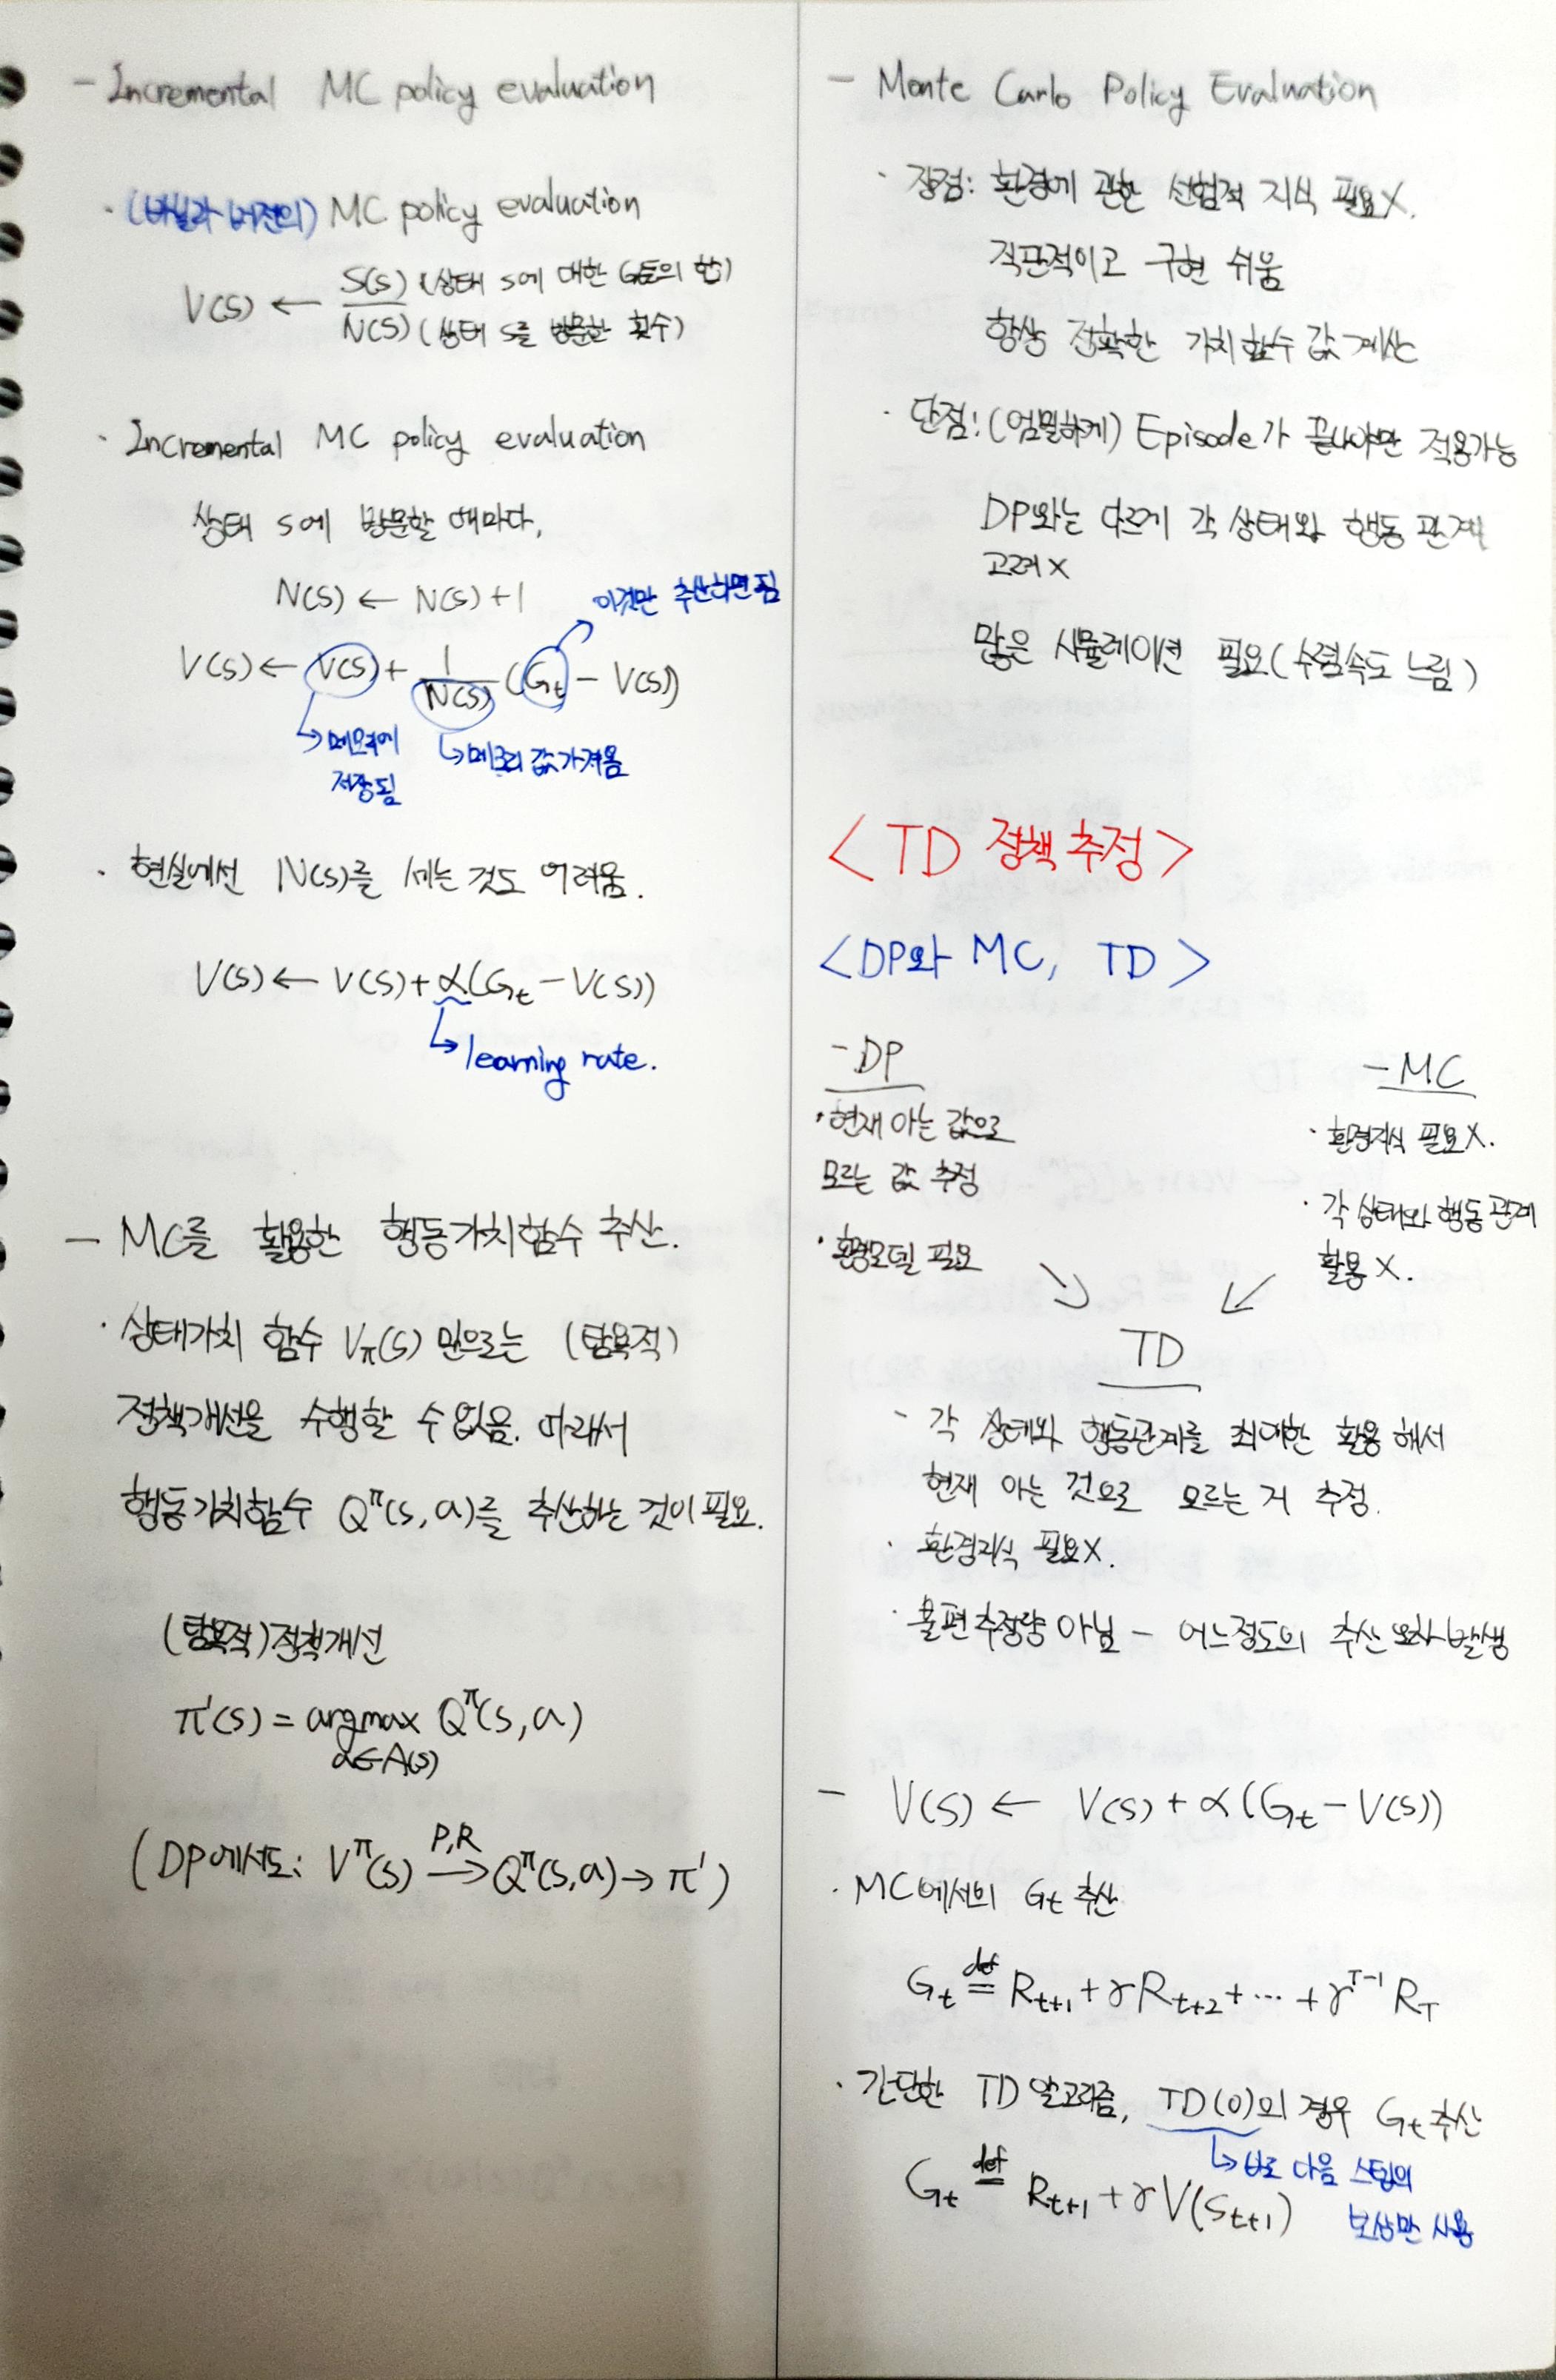 - Incremental MC policy evaluation
· (바닐라 버전의) MC policy evaluation
V(s) ← S(s) (상태 s에 대한 G들의 합)
N(s) (상태 s를 방문한 횟수)
· Incremental MC policy evaluation
상태 s에 방문할 때마다,
N(s) ← N(s)+1
이것만 추산하면 됨
V(s) ← V(s) + 1/N(s) (Gt - V(s))
↳ 메모리에
저장됨
↳ 메모리 값 가져옴
· 현실에선 N(s)를 세는 것도 어려움.
V(s) ← V(s) + α(Gt - V(s))
↳ learning rate.
- MC를 활용한 행동가치함수 추산.
· 상태가치 함수 Vπ(s) 만으로는 (탐욕적)
정책개선을 수행할 수 없음. 따라서
행동가치함수 Qπ(s,a)를 추산하는 것이 필요.
(탐욕적)정책개선
π'(s) = argmax Qπ(s,a)
a∈A(s)
(DP에서도: Vπ(s) P,R→ Qπ(s,a) → π')
- Monte Carlo Policy Evaluation
· 장점: 환경에 관한 선험적 지식 필요X.
직관적이고 구현 쉬움
항상 정확한 가치함수 값 계산
· 단점: (엄밀하게) Episode가 끝나야만 적용가능
DP와는 다르게 각 상태와 행동 관계
고려 X
많은 시뮬레이션 필요(수렴속도 느림)
<TD 정책 추정>
<DP와 MC, TD>
- DP
· 현재 아는 값으로
모르는 값 추정
· 환경모델 필요
- MC
· 환경지식 필요X.
· 각 상태와 행동 관계
활용 X.
↘ ↙
TD
- 각 상태와 행동관계를 최대한 활용 해서
현재 아는 것으로 모르는 거 추정.
· 환경지식 필요X.
· 불편추정량 아님 - 어느정도의 추산 오차 발생
- V(s) ← V(s) + α(Gt - V(s))
· MC에서의 Gt 추산
Gt def= Rt+1 + γRt+2 + ··· + γ^T-1 RT
· 간단한 TD 알고리즘, TD(0)의 경우 Gt 추산
↳ 바로 다음 스텝의
보상만 사용
Gt def= Rt+1 + γV(St+1)